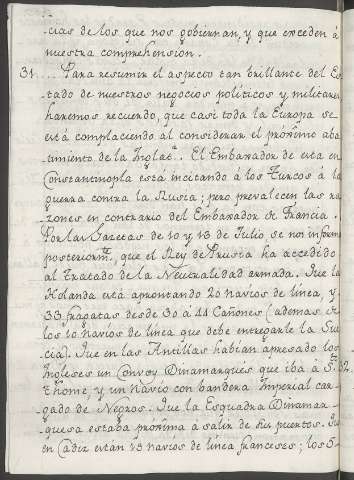 cias de los que nos gobiernan, y que exceden à
nuestra comprehension.
31.... Para resumir el aspecto tan brillante del Es
tado de nuestros negocios politicos y militares
haremos recuerdo, que casi toda la Europa se
està complaciendo al considerar el pròximo aba
timiento de la Inglat.ª. El Embaxador de esta en
Constantinopla està incitando à los Turcos à la
guerra contra la Rusia; pero prevalecen las ra
zones en contrario del Embaxador de Francia.
Por las Gazetas de 10 y 13 de Julio se nos informa
posteriorm.te, que el Rey de Prusia ha accedido
al Tratado de la Neutralidad armada. Que la
Holanda està aprontando 20 navios de linea, y
33 fragatas desde 30 à 44 Cañones (ademas de
los 10 navios de linea que debe entregarle la Sue
cia). Que en las Antillas habian apresado los
Ingleses un Convoy Dinamarquès que iba à S.to
Thome, y un navio con bandera Imperial car
gado de Negros. Que la Esquadra Dinamar
quesa estaba pròxima à salir de su puerto. Que
en Cadiz estàn 13 navios de linea franceses; los 5
32.